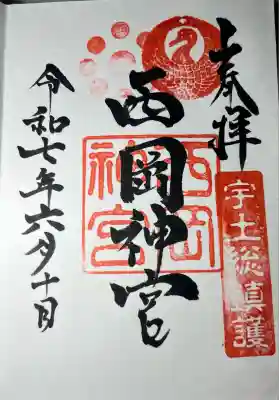 奉拝
宇土総真護
西岡神宮
西岡神宮
令和七年六月十日